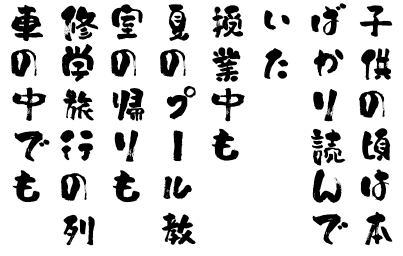 子供の頃は本
ばかり読んで
いた
授業中も
夏のプール教
室の帰りも
修学旅行の列
車の中でも